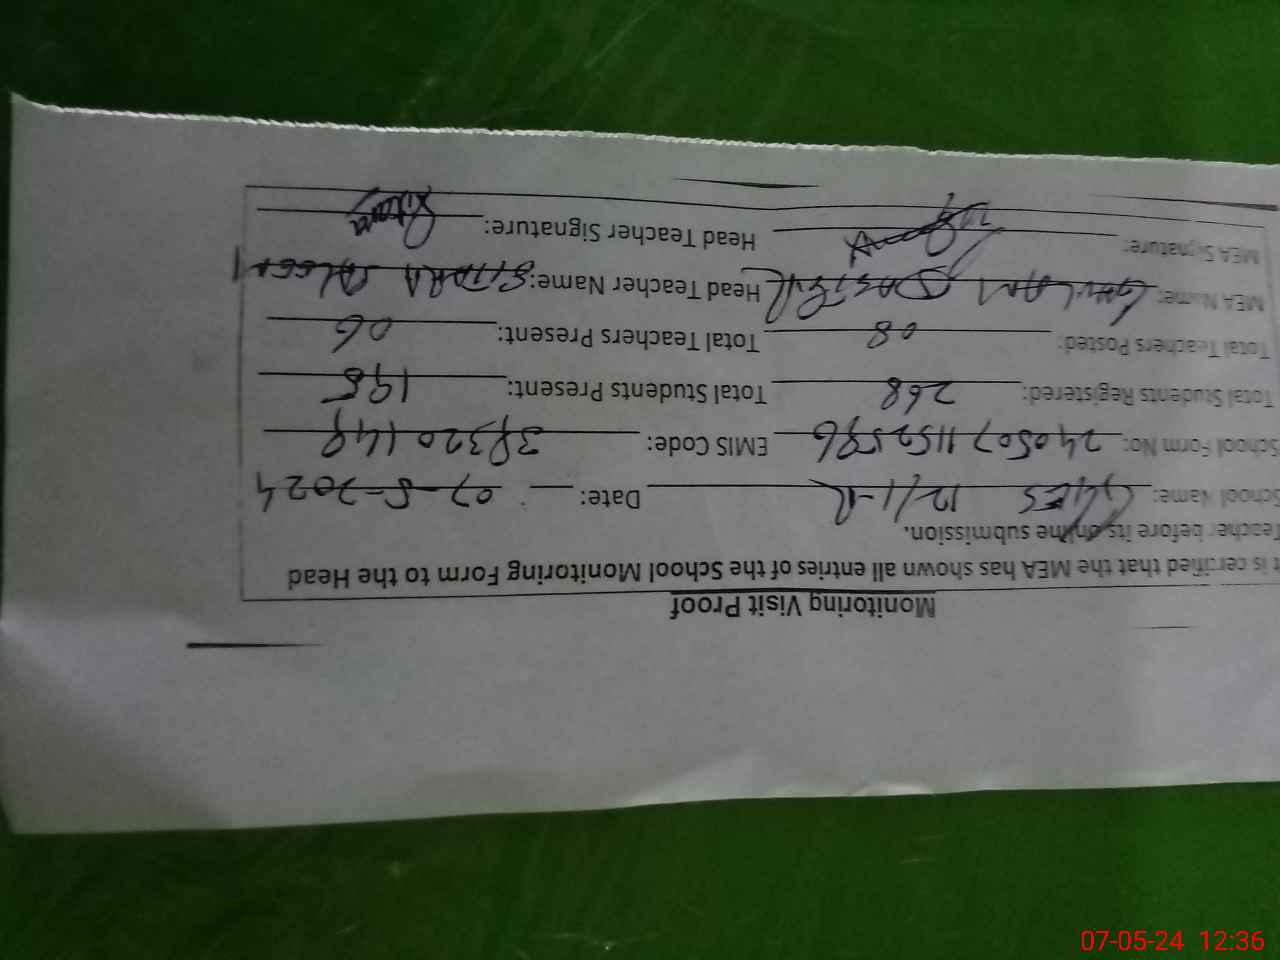 Monitoring Visit Proof
It is certified that the MEA has shown all entries of the School Monitoring Form to the Head
Teacher before its online submission.
School Name: GGES 12/1-R Date: 07-5-2024
School Form No: 2405071152596 EMIS Code: 39320149
Total Students Registered: 268 Total Students Present: 195
Total Teachers Posted: 08 Total Teachers Present: 06
MEA Name: GHULAM DASTGIR Head Teacher Name: SITARA
MEA Signature: Head Teacher Signature: Sitara
07-05-24 12:36